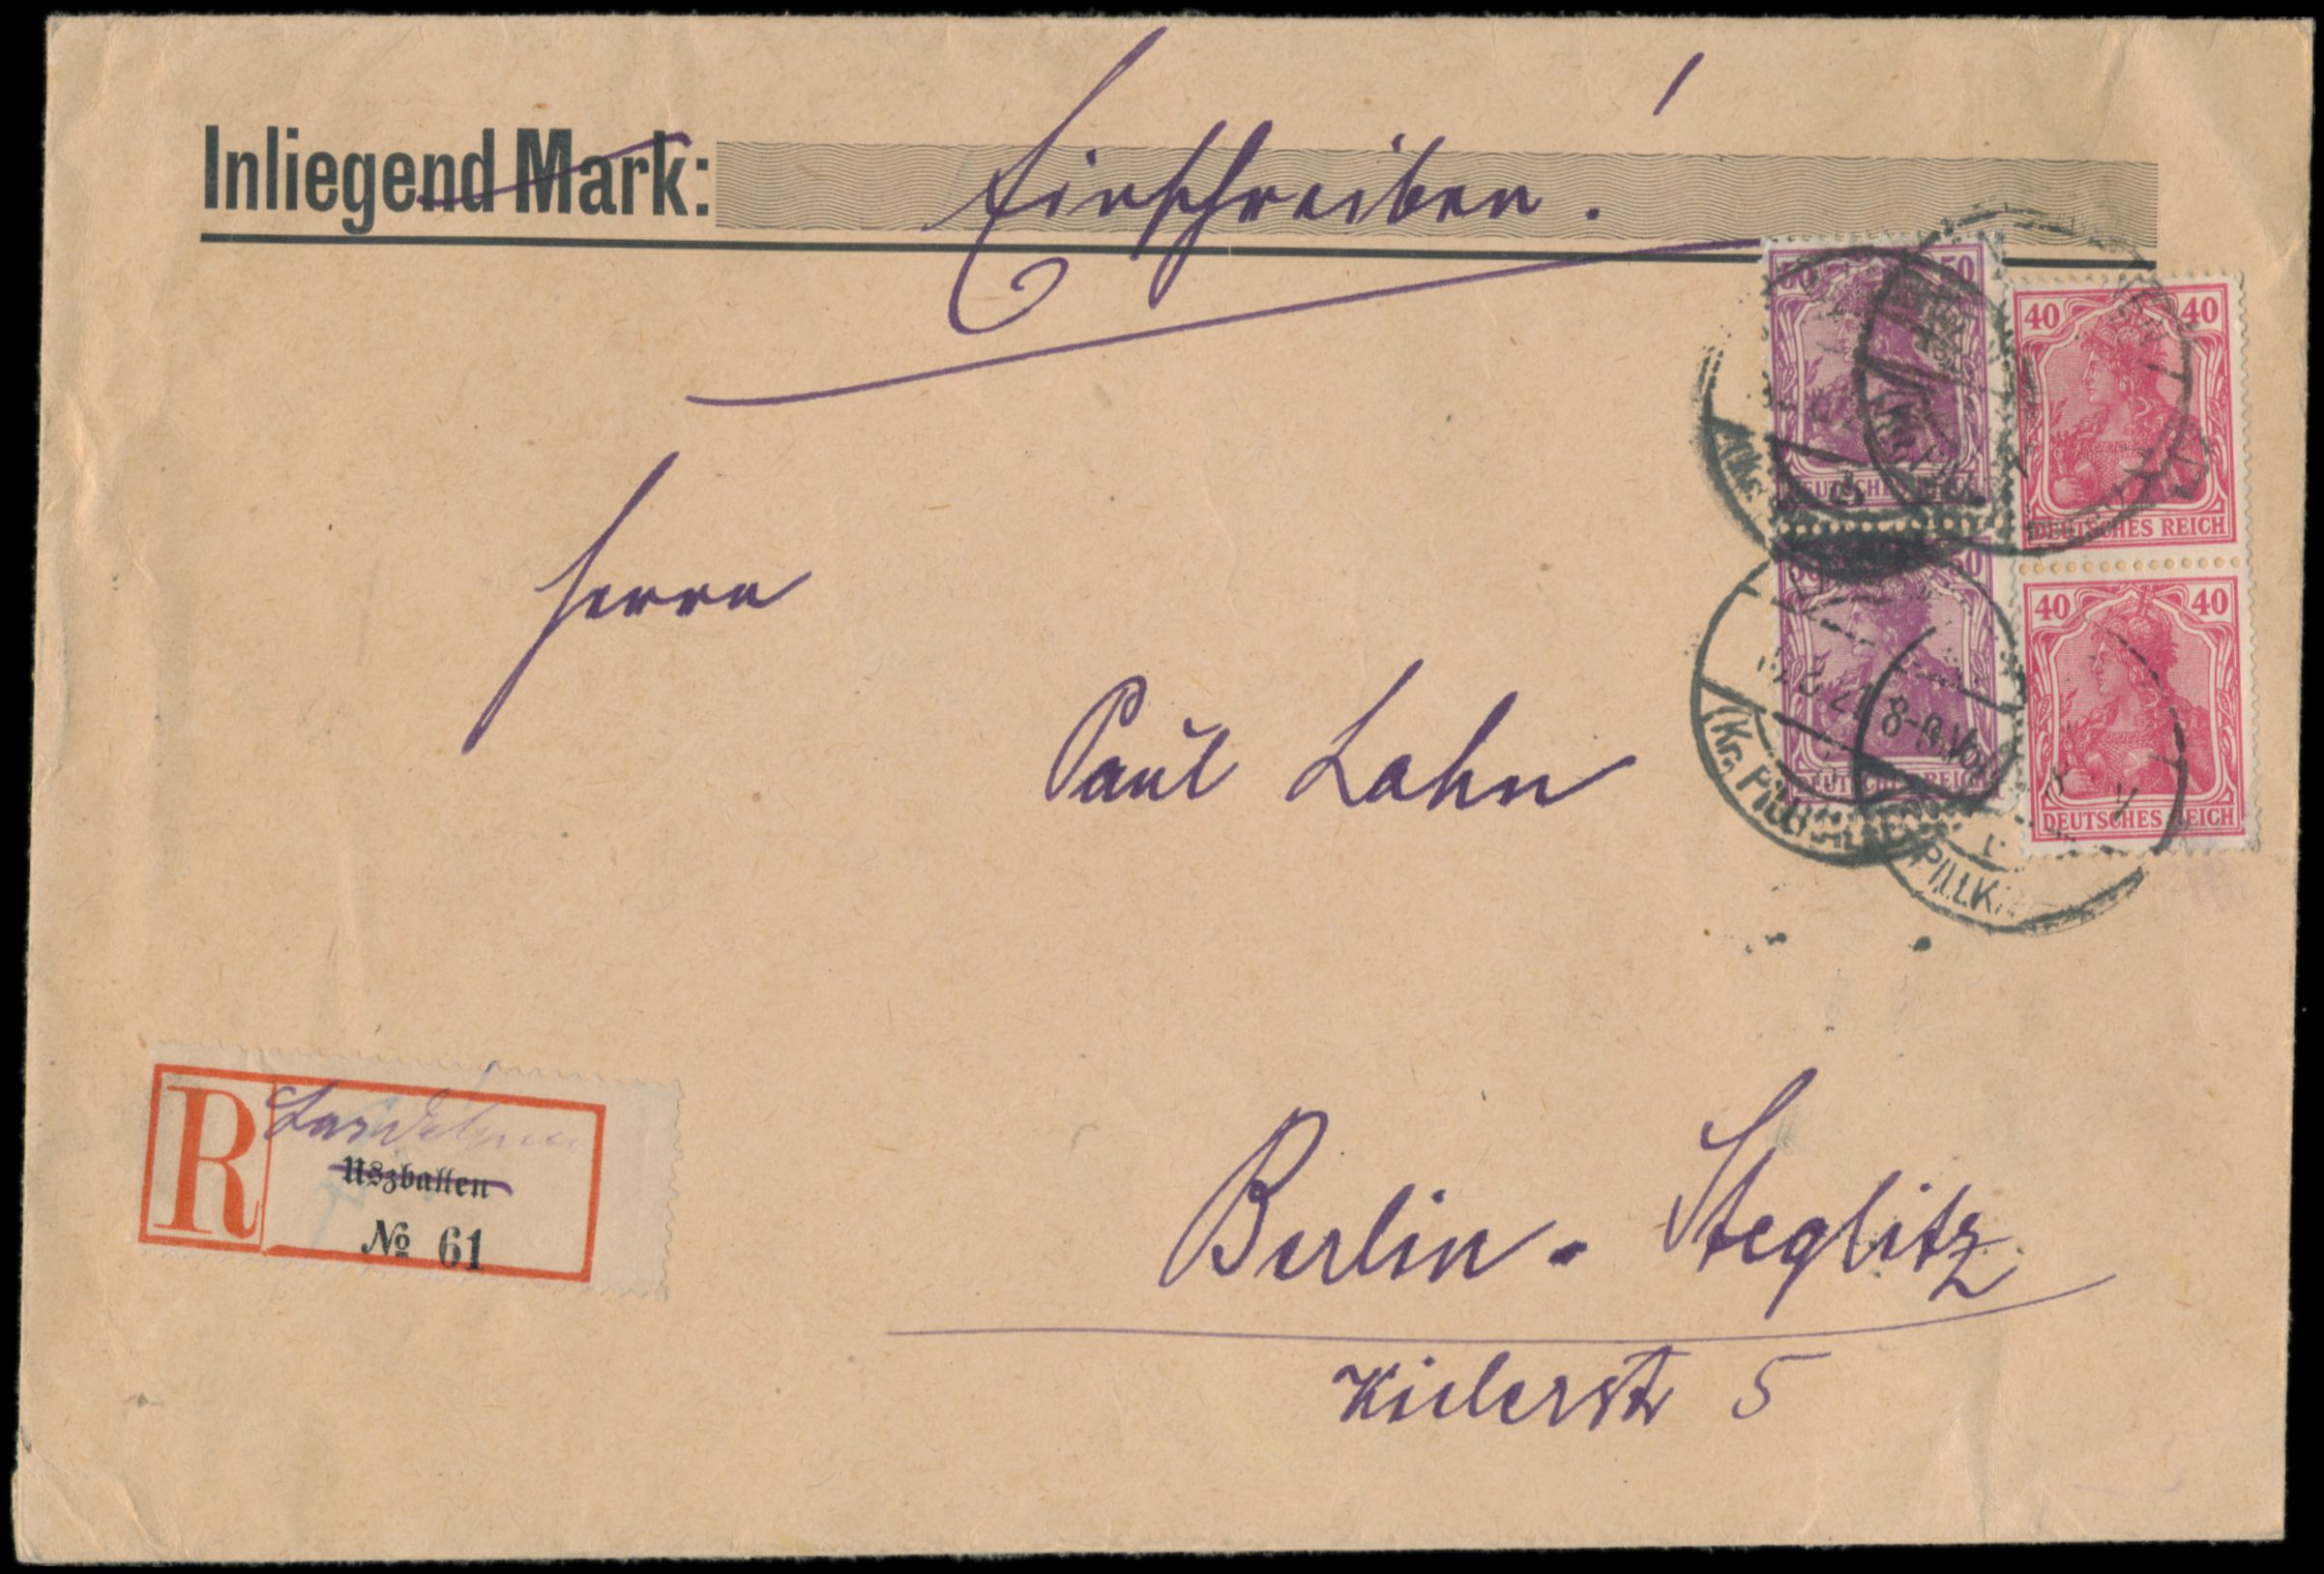 Inliegend Mark:
Einschreiben!
50 50
40 40
DEUTSCHES REICH
50
40 40
DEUTSCHES REICH
DEUTSCHES REICH
8-9.Vo
(Kr. PILLKALLEN
PILLK
Herrn
Paul Lahn
R
Uszballen
№ 61
Berlin - Steglitz
Kielerstr 5